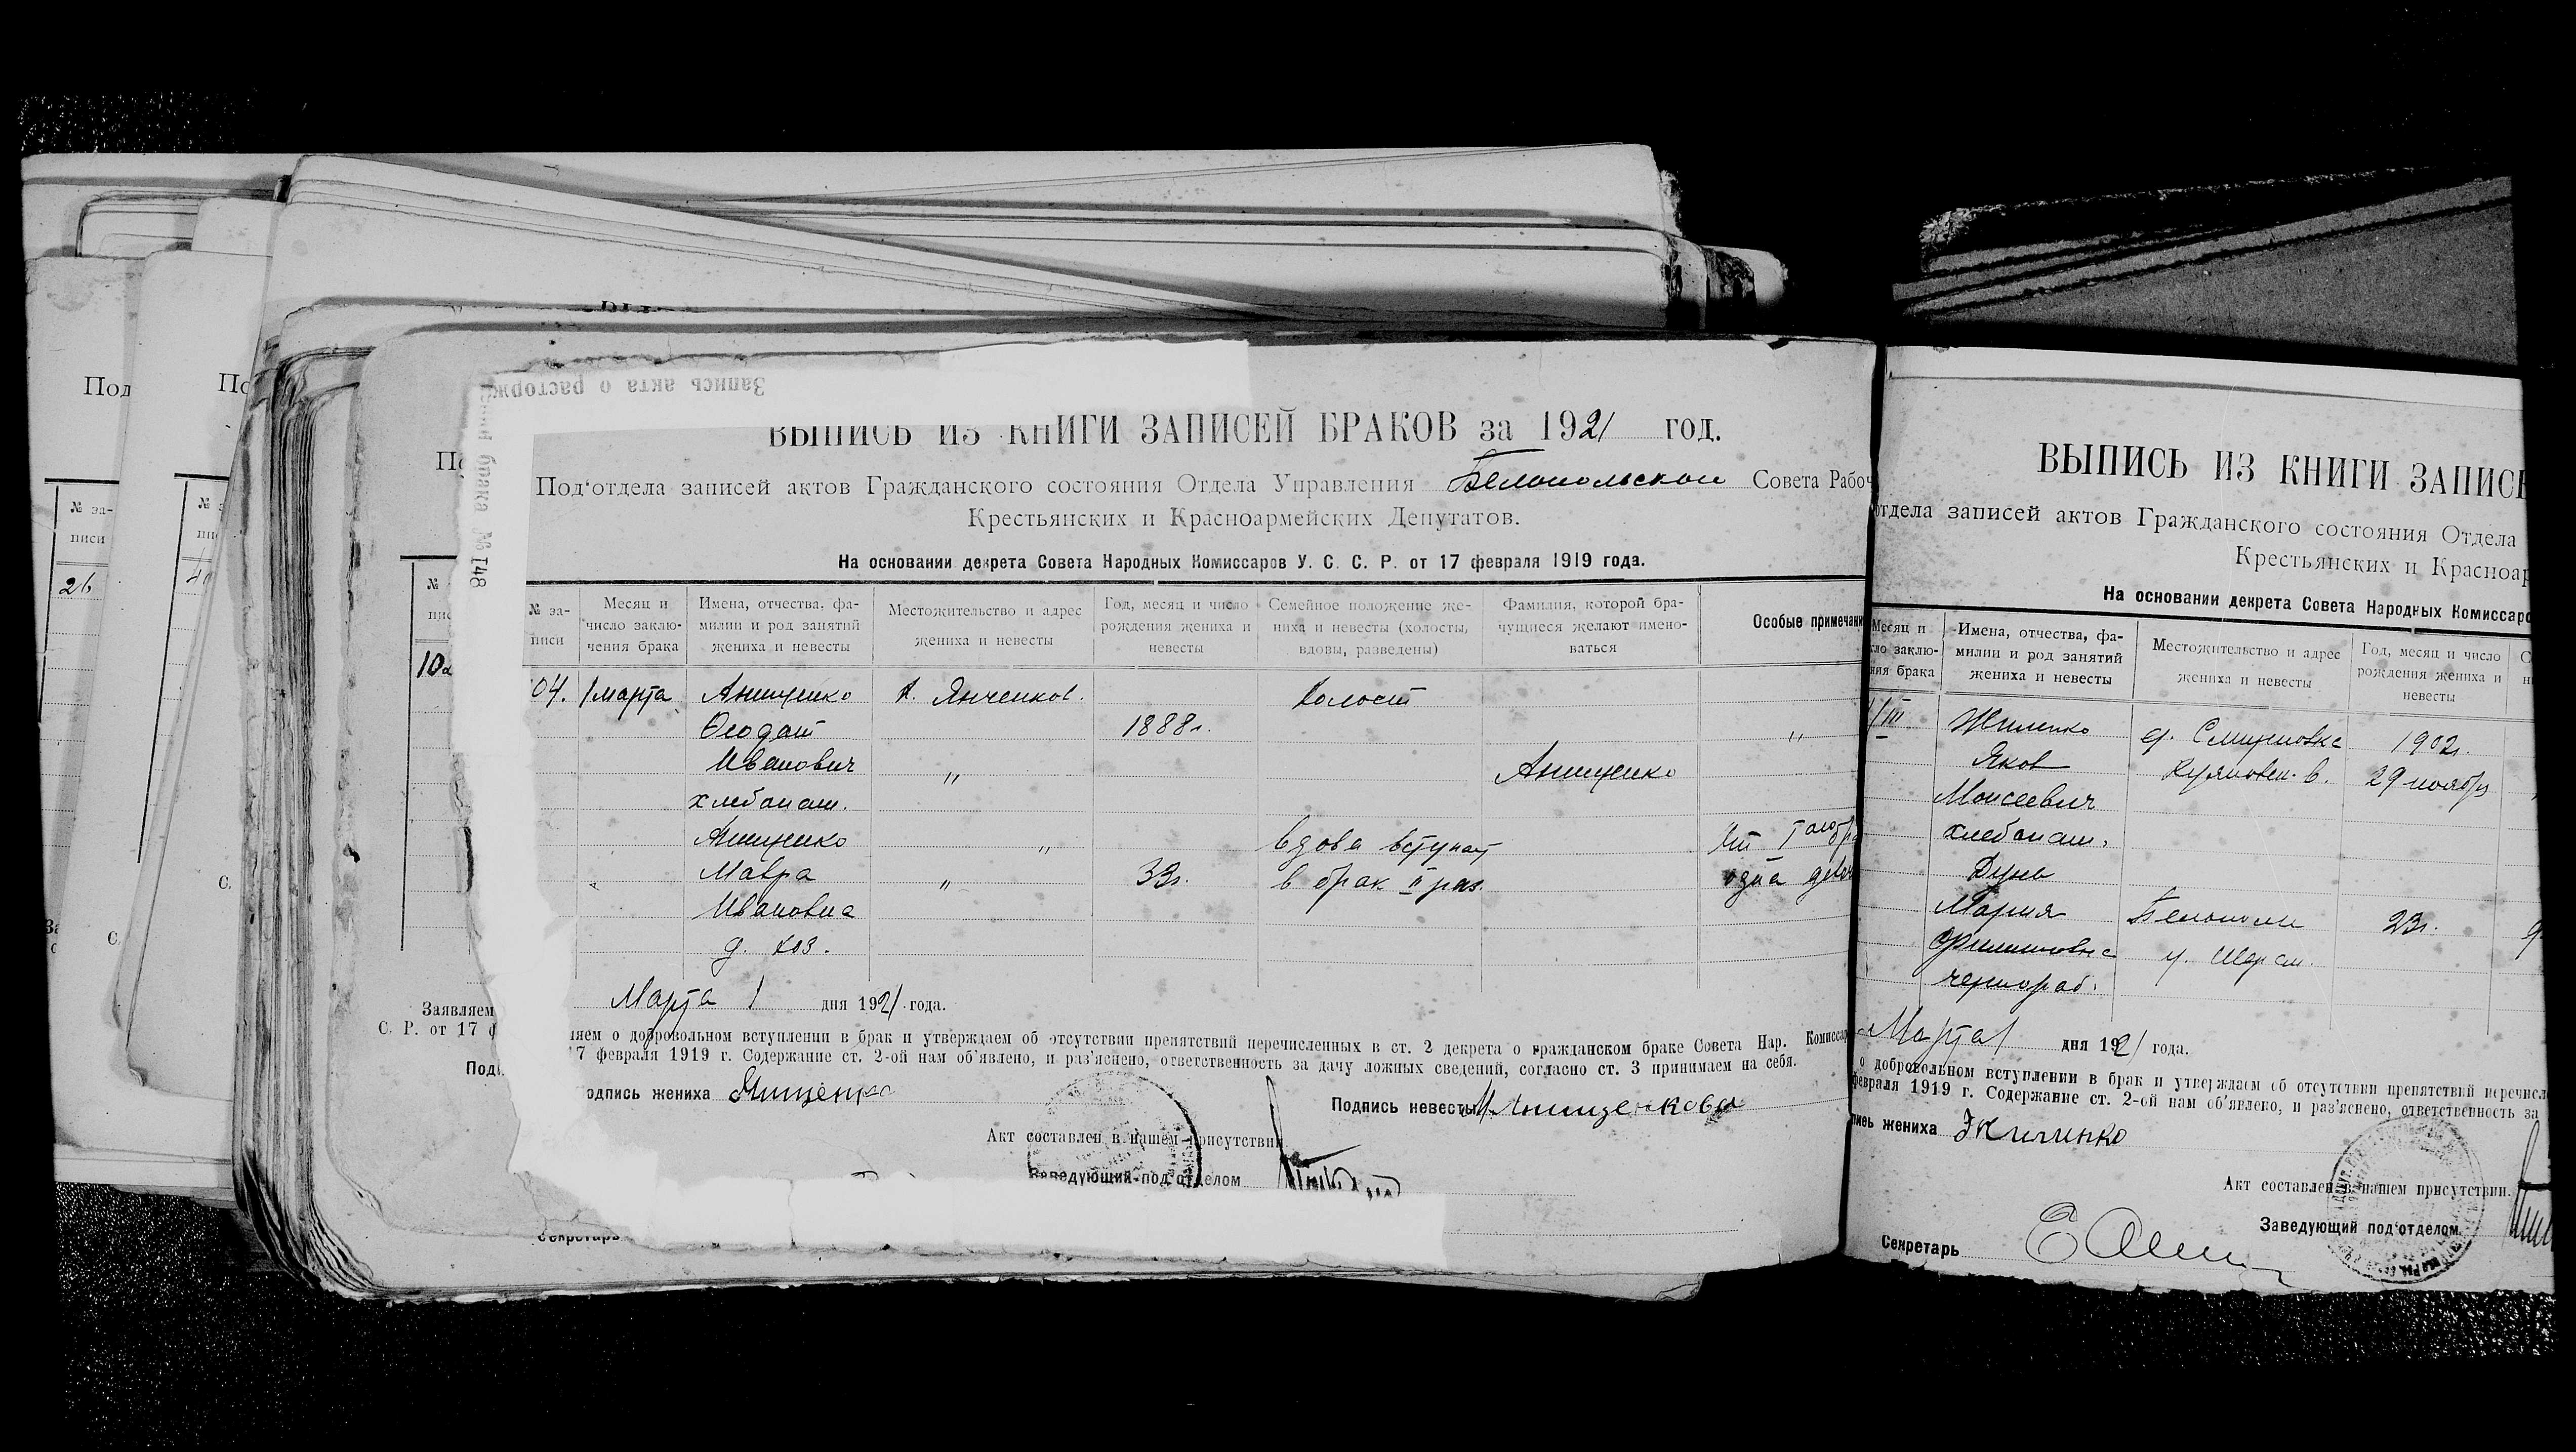 Под
По
По
№ за-
писи
26
№
10
Запись акта о расторж
брака № 148
ВЫПИСЬ ИЗ КНИГИ ЗАПИСЕЙ БРАКОВ за 1921 год.
Под'отдела записей актов Гражданского состояния Отдела Управления Белопольской Совета Рабоч
Крестьянских и Красноармейских Депутатов.
На основании декрета Совета Народных Комиссаров У. С. С. Р. от 17 февраля 1919 года.
№ за-
писи
Месяц и
число заклю-
чения брака
Имена, отчества, фа-
милии и род занятий
жениха и невесты
Местожительство и адрес
жениха и невесты
Год, месяц и число
рождения жениха и
невесты
Семейное положение же-
ниха и невесты (холосты,
вдовы, разведены)
Фамилия, которой бра-
чущиеся желают имено-
ваться
Особые примечани
04. 1 марта Анищенко х. Янченков. холост
Феодот 1888г. "
Иванович " Анищенко
хлебопаш.
Анищенко " вдова вступает
Мавра " 33г. в брак II раз.
одна
Ивановна
д. хоз.
Марта 1 дня 1921 года.
Заявляем
С. Р. от 17 ф
ляем о добровольном вступлении в брак и утверждаем об отсутствии препятствий перечисленных в ст. 2 декрета о гражданском браке Совета Нар. Комиссар
17 февраля 1919 г. Содержание ст. 2-ой нам об'явлено, и раз'яснено, ответственность за дачу ложных сведений, согласно ст. 3 принимаем на себя.
одпись жениха Анищенко
Подпись невесты М. Анищенкова
Акт составлен в нашем присутствии
Заведующий под'отделом
Секретарь
ВЫПИСЬ ИЗ КНИГИ ЗАПИСЕ
отдела записей актов Гражданского состояния Отдела
Крестьянских и Красноар
На основании декрета Совета Народных Комиссаро
Месяц и
ло заклю-
ния брака
Имена, отчества, фа-
милии и род занятий
жениха и невесты
Местожительство и адрес
жениха и невесты
Год, месяц и число
рождения жениха и
невесты
1/III Жиленко 1902г.
Яков 29 ноября
Моисеевич
хлебопаш.
Дунь
Мария Белополье 23г.
Филипповна
чернораб.
Марта 1 дня 1921 года.
о добровольном вступлении в брак и утверждаем об отсутствии препятствий перечисл
февраля 1919 г. Содержание ст. 2-ой нам об'явлено, и раз'яснено, ответственность за
пись жениха Жиленко
Акт составлен в нашем присутствии.
Заведующий под'отделом
Секретарь